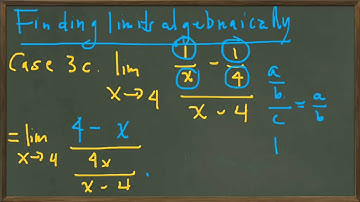 Finding limits algebraically
Case 3c. lim x→4 (1/x - 1/4)/(x-4)
a/b/c = a/b
1
= lim x→4 (4-x)/(4x)/(x-4).